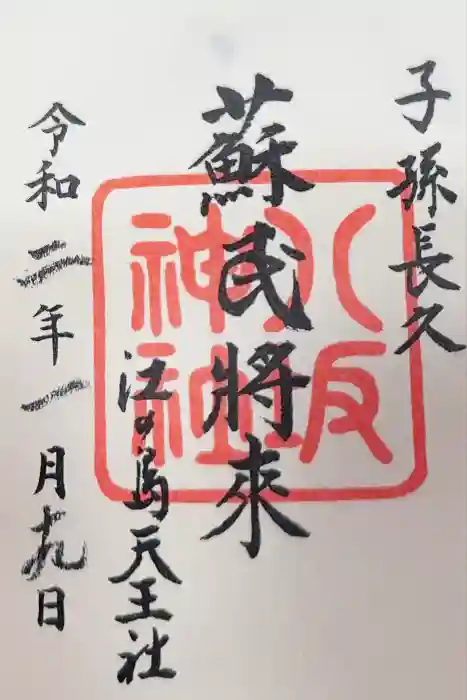 子孫長久
蘇民將來
八坂
神社
江の島天王社
令和二年一月九日